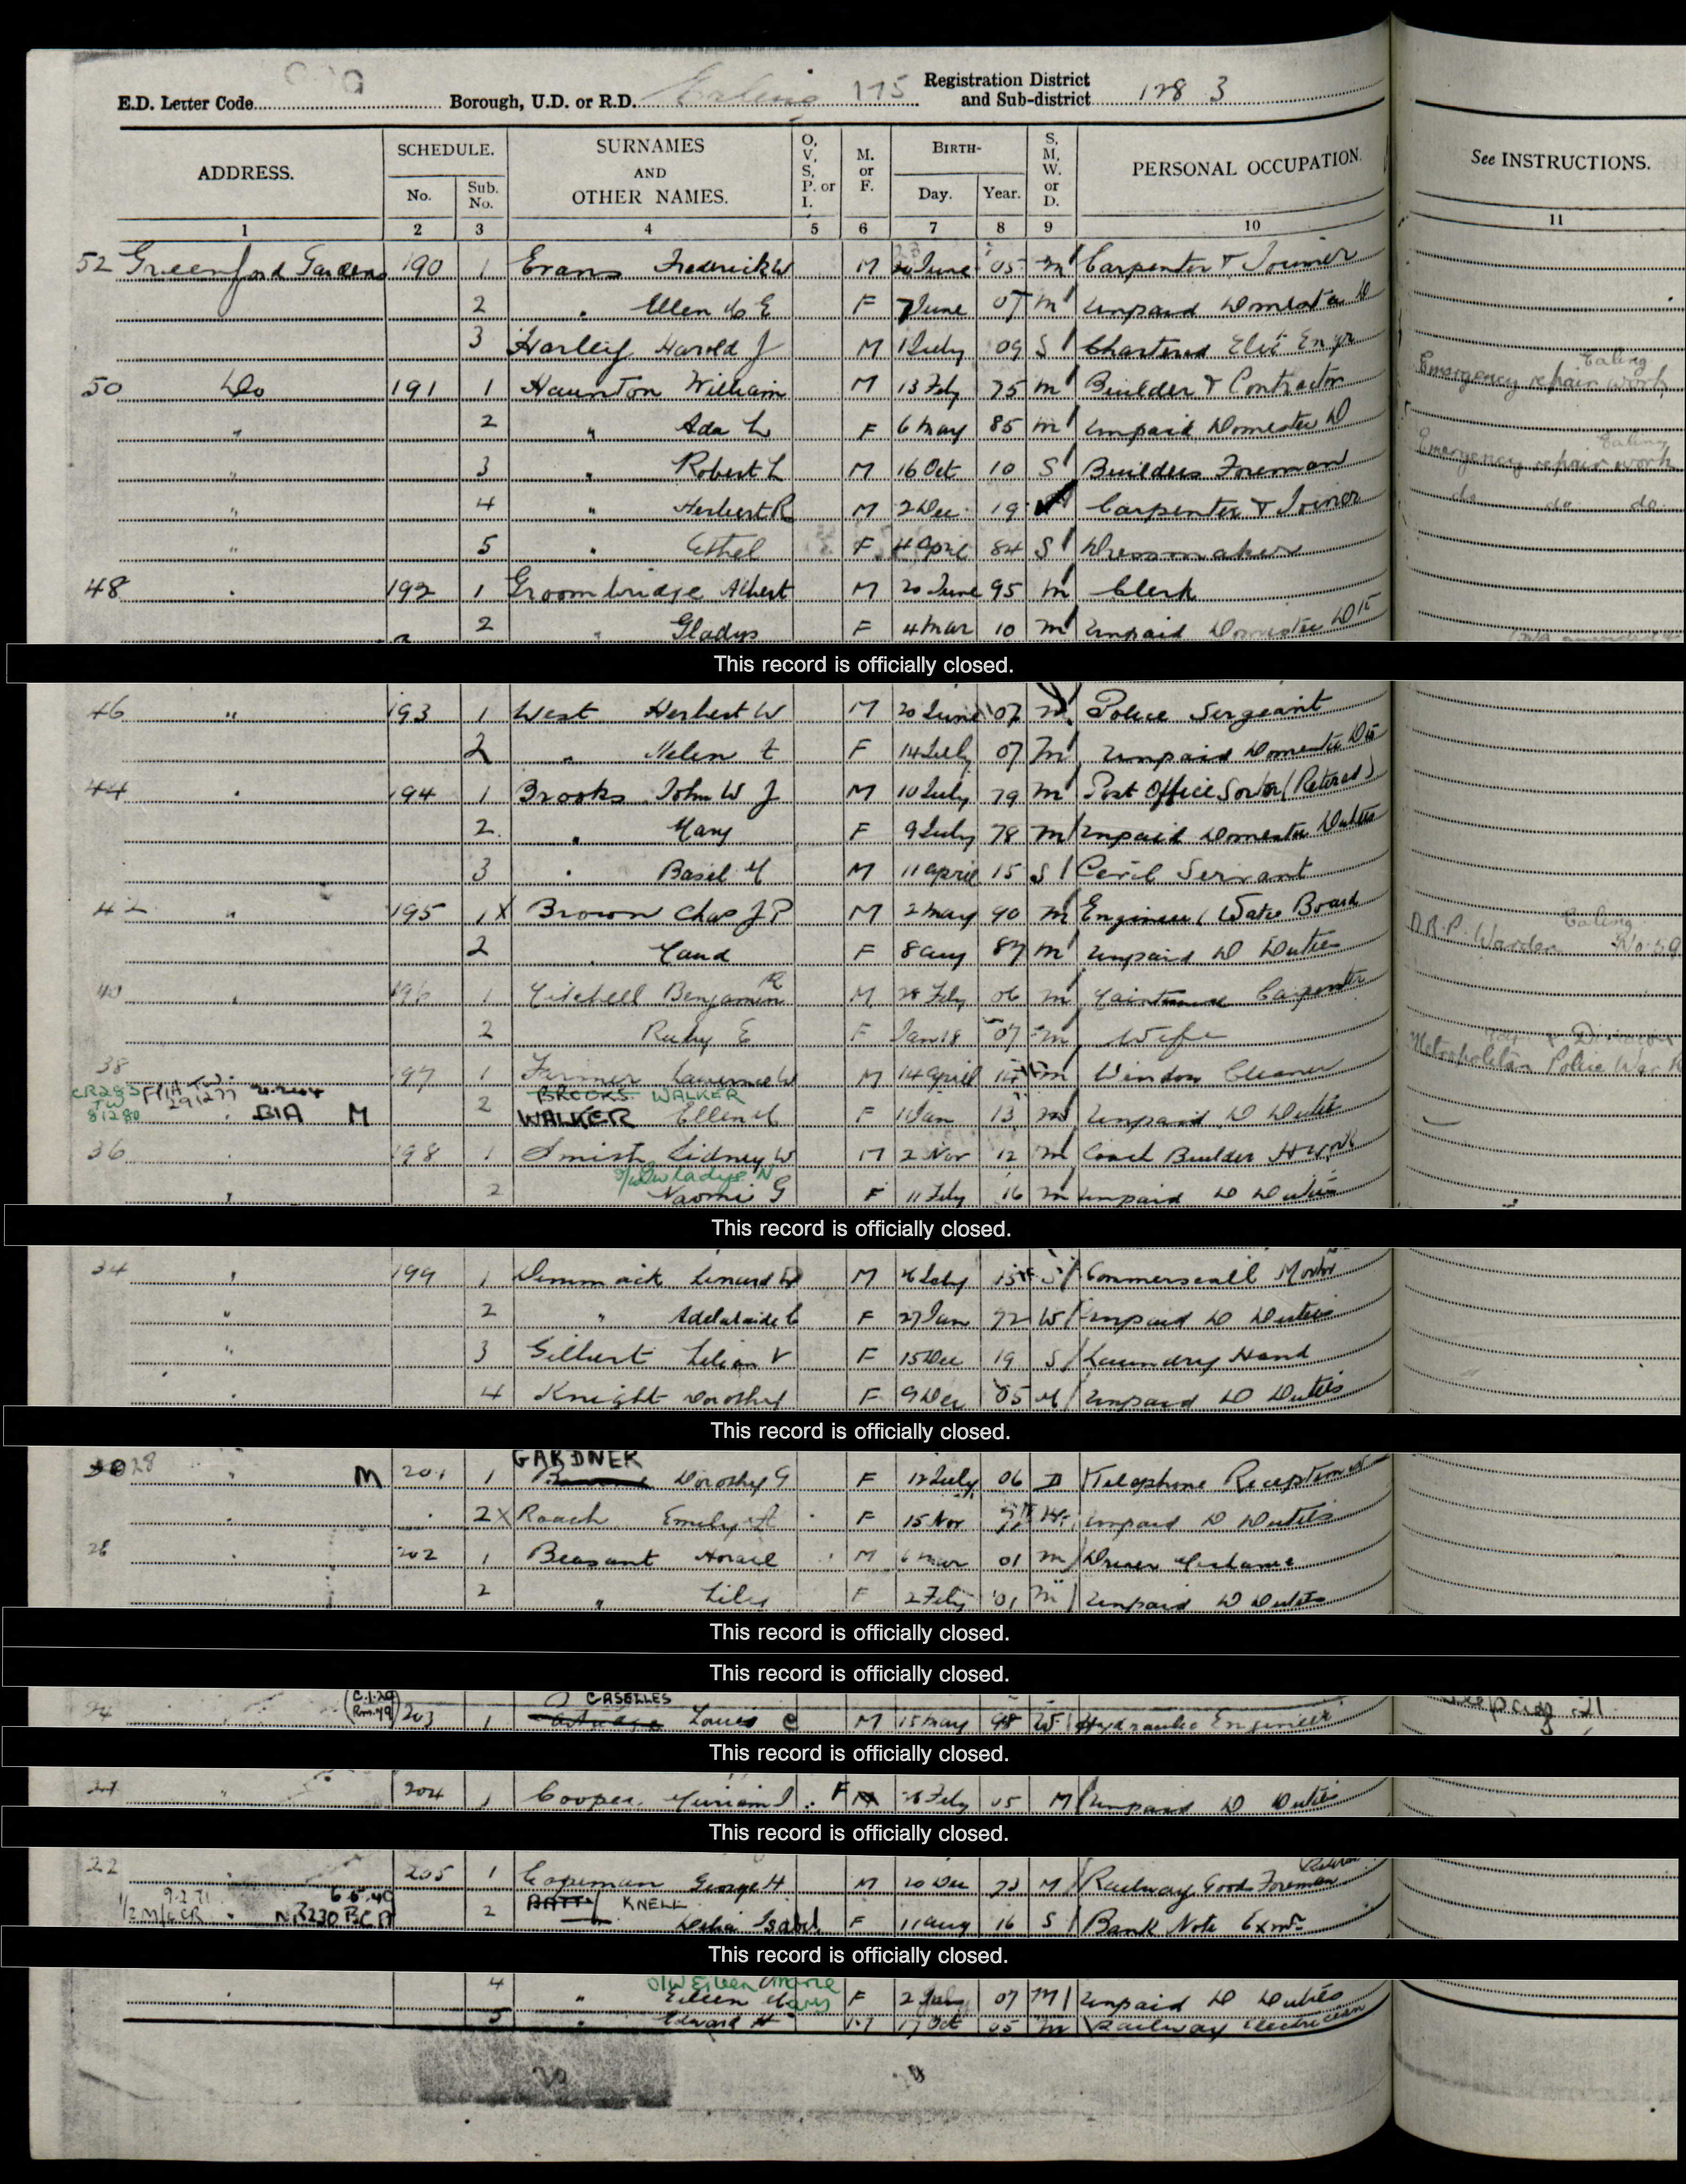 E.D. Letter Code Borough, U.D. or R.D. Ealing 175 Registration District and Sub-district 128 3
ADDRESS. SCHEDULE. No. Sub. No. SURNAMES AND OTHER NAMES. O, V, S, P. or I. M. or F. BIRTH- Day. Year. S. M. W. or D. PERSONAL OCCUPATION. See INSTRUCTIONS.
1 2 3 4 5 6 7 8 9 10 11
52 Greenford Gardens 190 1 Evans Frederick W M June 05 M Carpenter & Joiner
2 " Ellen E F 7 June 07 M Unpaid Domestic D
3 Harley Harold J M 1 July 09 S Chartered Elec Engr
50 Do 191 1 Haunton William M 13 Feby 75 M Builder & Contractor Ealing Emergency repair work
" 2 " Ada L F 6 May 85 M Unpaid Domestic D
" 3 " Robert L M 16 Oct 10 S Builders Foreman Ealing Emergency repair work
" 4 " Herbert R M 2 Dec 19 Carpenter & Joiner do do do
" 5 " Ethel F 4 April 84 S Dressmaker
48 " 192 1 Groombridge Albert M 20 June 95 M Clerk
2 " Gladys F 4 Mar 10 M Unpaid Domestic D
This record is officially closed.
46 " 193 1 West Herbert W M 20 June 07 M Police Sergeant
2 " Helen F 14 July 07 M Unpaid Domestic
44 " 194 1 Brooks John W J M 10 July 79 M Post Office Sorter (Retired)
2 " Mary F 9 July 78 M Unpaid Domestic Duties
3 " Basil M M 11 April 15 S Civil Servant
42 " 195 1 X Brown Chas J P M 2 May 90 M Engineer, Water Board Ealing A.R.P. Warden
2 " Maud F 8 Aug 87 M Unpaid D Duties
40 " 196 1 Mitchell Benjamin R M 28 Feby 06 M Maintenance Carpenter
2 Ruby E F Jan 18 07 M Wife
38 197 1 Farmer Lawrence W M 14 April M Window Cleaner Metropolitan Police War
CR283 TW 81280 291277 BIA M 2 BROOKS WALKER WALKER Ellen M F 1 Jan 13 M Unpaid D Duties
36 " 198 1 Smith Sidney W M 2 Nov 12 M Coach Builder
" 2 Gwladys N Naomi G F 11 Feby 16 M Unpaid D Duties
This record is officially closed.
34 " 199 1 Dimmock M July 15 S Commerseall Motor
" 2 " Adelaide F 27 Jan 72 W Unpaid D Duties
" 3 Gilbert Lilian V F 15 Dec 19 S Laundry Hand
" 4 Knight Dorothy F 9 Dec 05 M Unpaid D Duties
This record is officially closed.
28 " M 201 1 GARDNER Dorothy G F 12 July 06 D Telephone Receptionist
" 2 X Roach Emily A F 15 Nov Unpaid D Duties
28 " 202 1 Beasant Horace M 6 Mar 01 M Driver Mechanic
2 " Lily F 2 Feby 01 M Unpaid D Duties
This record is officially closed.
This record is officially closed.
24 (C.1.29 Rm.49) 203 1 CASELLES Louis C M 15 May 98 W Hydraulic Engineer
This record is officially closed.
" 204 1 Cooper Miriam I F M 26 Feby 05 M Unpaid D Duties
This record is officially closed.
22 " 205 1 Capeman George H M 20 Dec 73 M Railway Good Foreman Retired
1/2 M/CCR 9.2.71 6.5.40 NR230 BCA 2 BATT KNELL Delia Isabel F 11 Aug 16 S Bank Note Exmr
This record is officially closed.
" 4 " O/W Eileen Eileen Mary F 2 07 M Unpaid D Duties
5 " Edward H M 17 Oct 05 M Railway Electrician